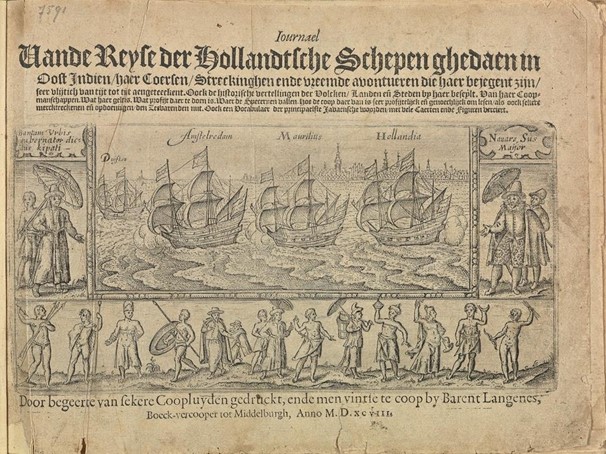 7591
Iournael
Vande Reyse der Hollandtsche Schepen ghedaen in
Oost Indien / haer Coersen / Streckinghen ende vreemde avontueren die haer bejegent zijn /
seer vlijtich van tijt tot tijt aengeteeckent. Oock de historische vertellingen der Volcken / Landen en Steden by haer beseylt. Van haer Coop-
manschappen. Wat haer geldt. Wat profijt daer te doen is. Waer de vallen. Hoe de coop daer van is seer profijtelijck en genoechlijck om lesen / als oock sekere
en opdoeningen den Zeevarenden nut. Oock een Vocabulare der principaelste Javaensche woorden met vele Caerten ende Figuren verciert.
Amstelredam Mauritius Hollandia
Bantam Vrbis
gubernator dict
kipati
Navarc. Sus
Maijor
Door begeerte van sekere Coopluyden gedruckt, ende men vintse te coop by Barent Langenes,
Boeck-vercooper tot Middelburgh, Anno M. D. XCVIII.